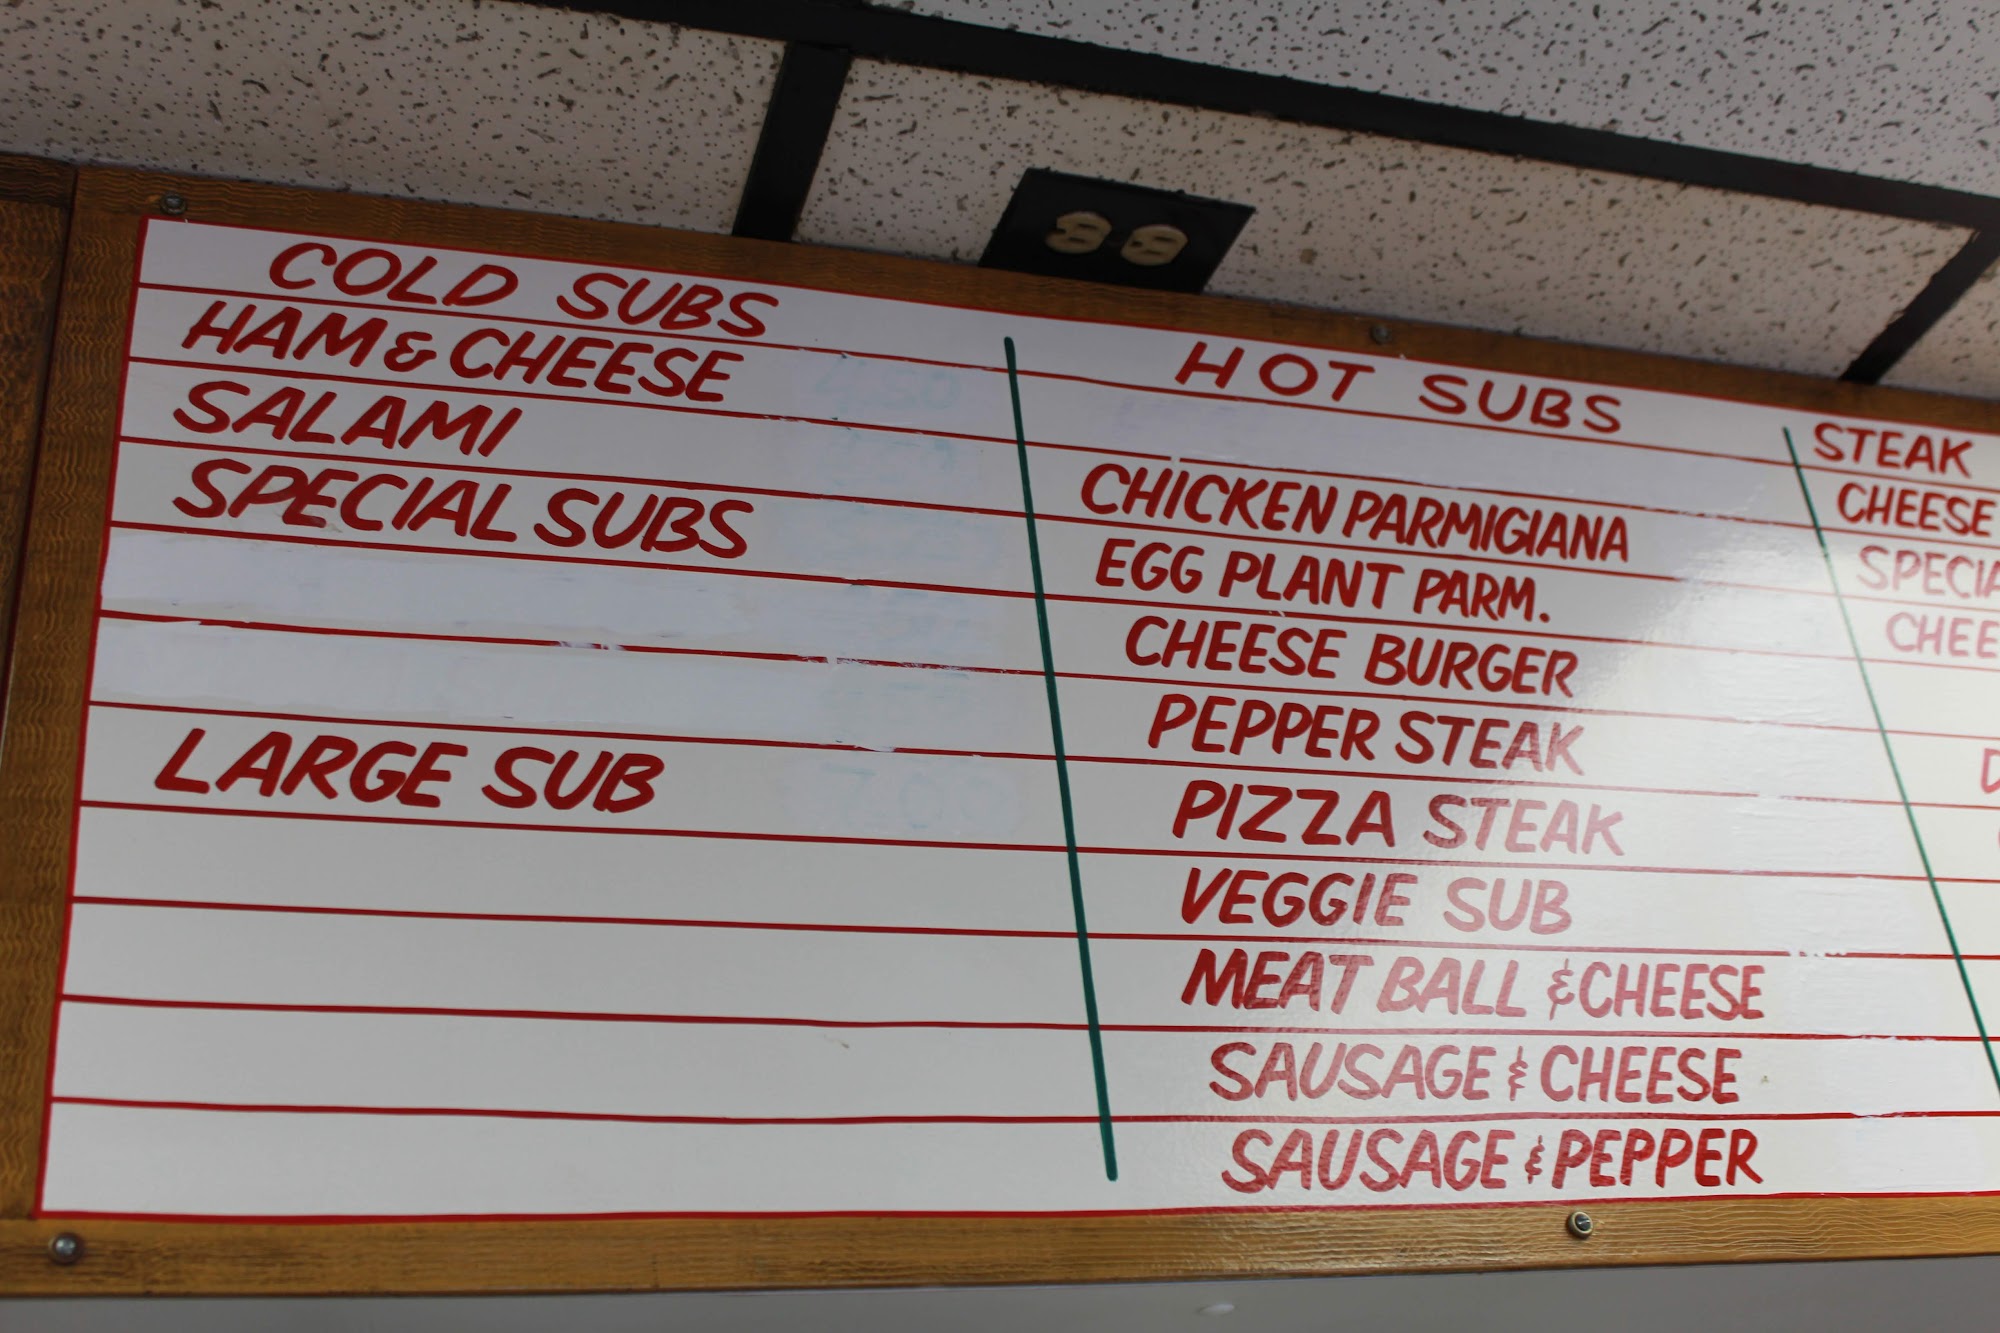 COLD SUBS
HAM & CHEESE
SALAMI
SPECIAL SUBS
LARGE SUB
HOT SUBS
CHICKEN PARMIGIANA
EGG PLANT PARM.
CHEESE BURGER
PEPPER STEAK
PIZZA STEAK
VEGGIE SUB
MEAT BALL & CHEESE
SAUSAGE & CHEESE
SAUSAGE & PEPPER
STEAK
CHEESE